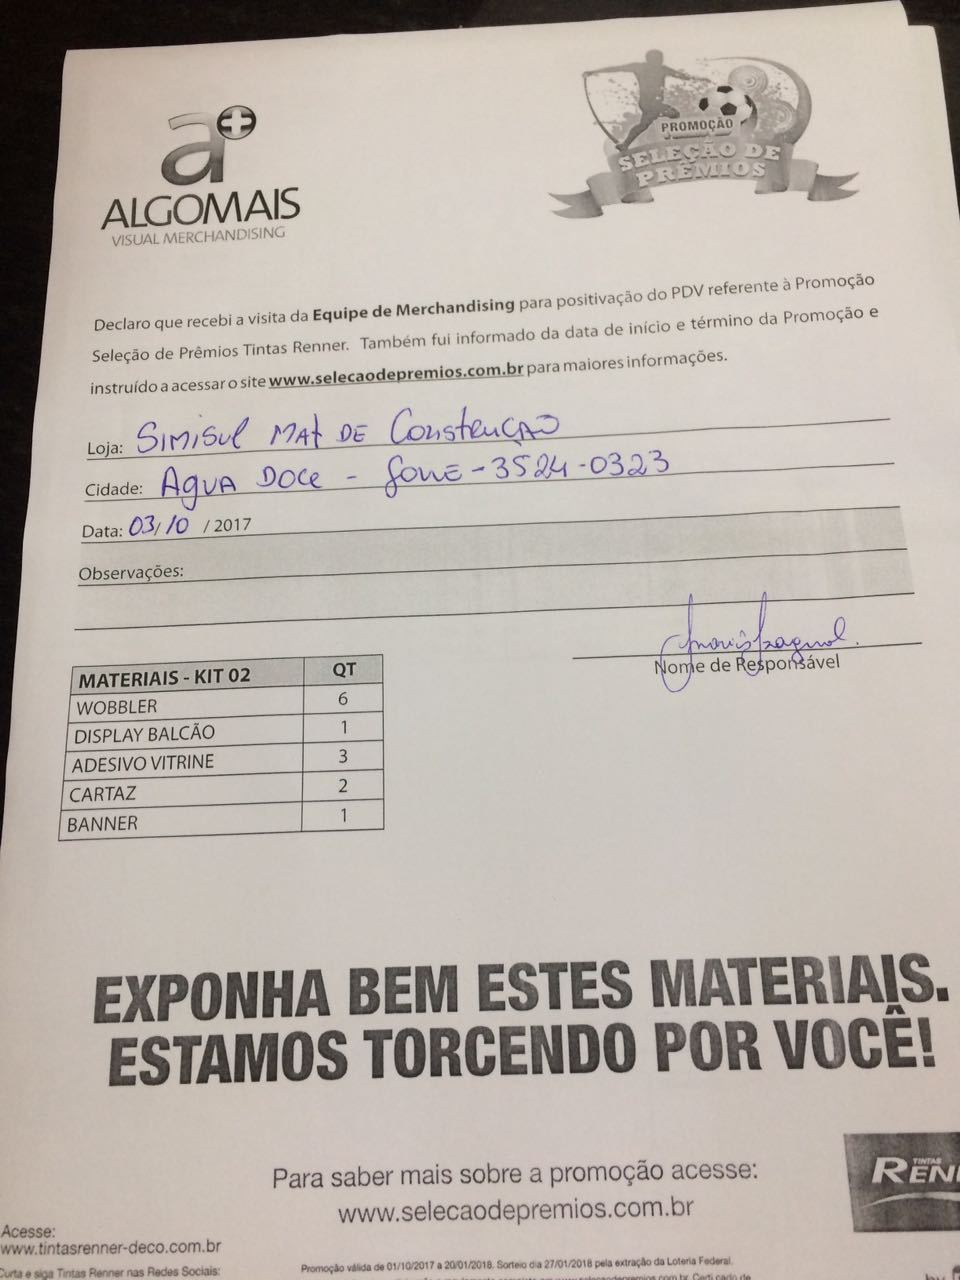 a+
ALGOMAIS
VISUAL MERCHANDISING
PROMOÇÃO
SELEÇÃO DE
PRÊMIOS
Declaro que recebi a visita da Equipe de Merchandising para positivação do PDV referente à Promoção
Seleção de Prêmios Tintas Renner. Também fui informado da data de início e término da Promoção e
instruído a acessar o site www.selecaodepremios.com.br para maiores informações.
Loja: Simisul Mat de Construção
Cidade: Agua Doce - fone - 3524-0323
Data: 03/10 / 2017
Observações:
Nome de Responsável
MATERIAIS - KIT 02 QT
WOBBLER 6
DISPLAY BALCÃO 1
ADESIVO VITRINE 3
CARTAZ 2
BANNER 1
EXPONHA BEM ESTES MATERIAIS.
ESTAMOS TORCENDO POR VOCÊ!
Para saber mais sobre a promoção acesse:
www.selecaodepremios.com.br
TINTAS
RENN
Acesse:
www.tintasrenner-deco.com.br
Curta e siga Tintas Renner nas Redes Sociais:
Promoção válida de 01/10/2017 a 20/01/2018. Sorteio dia 27/01/2018 pela extração da Loteria Federal.